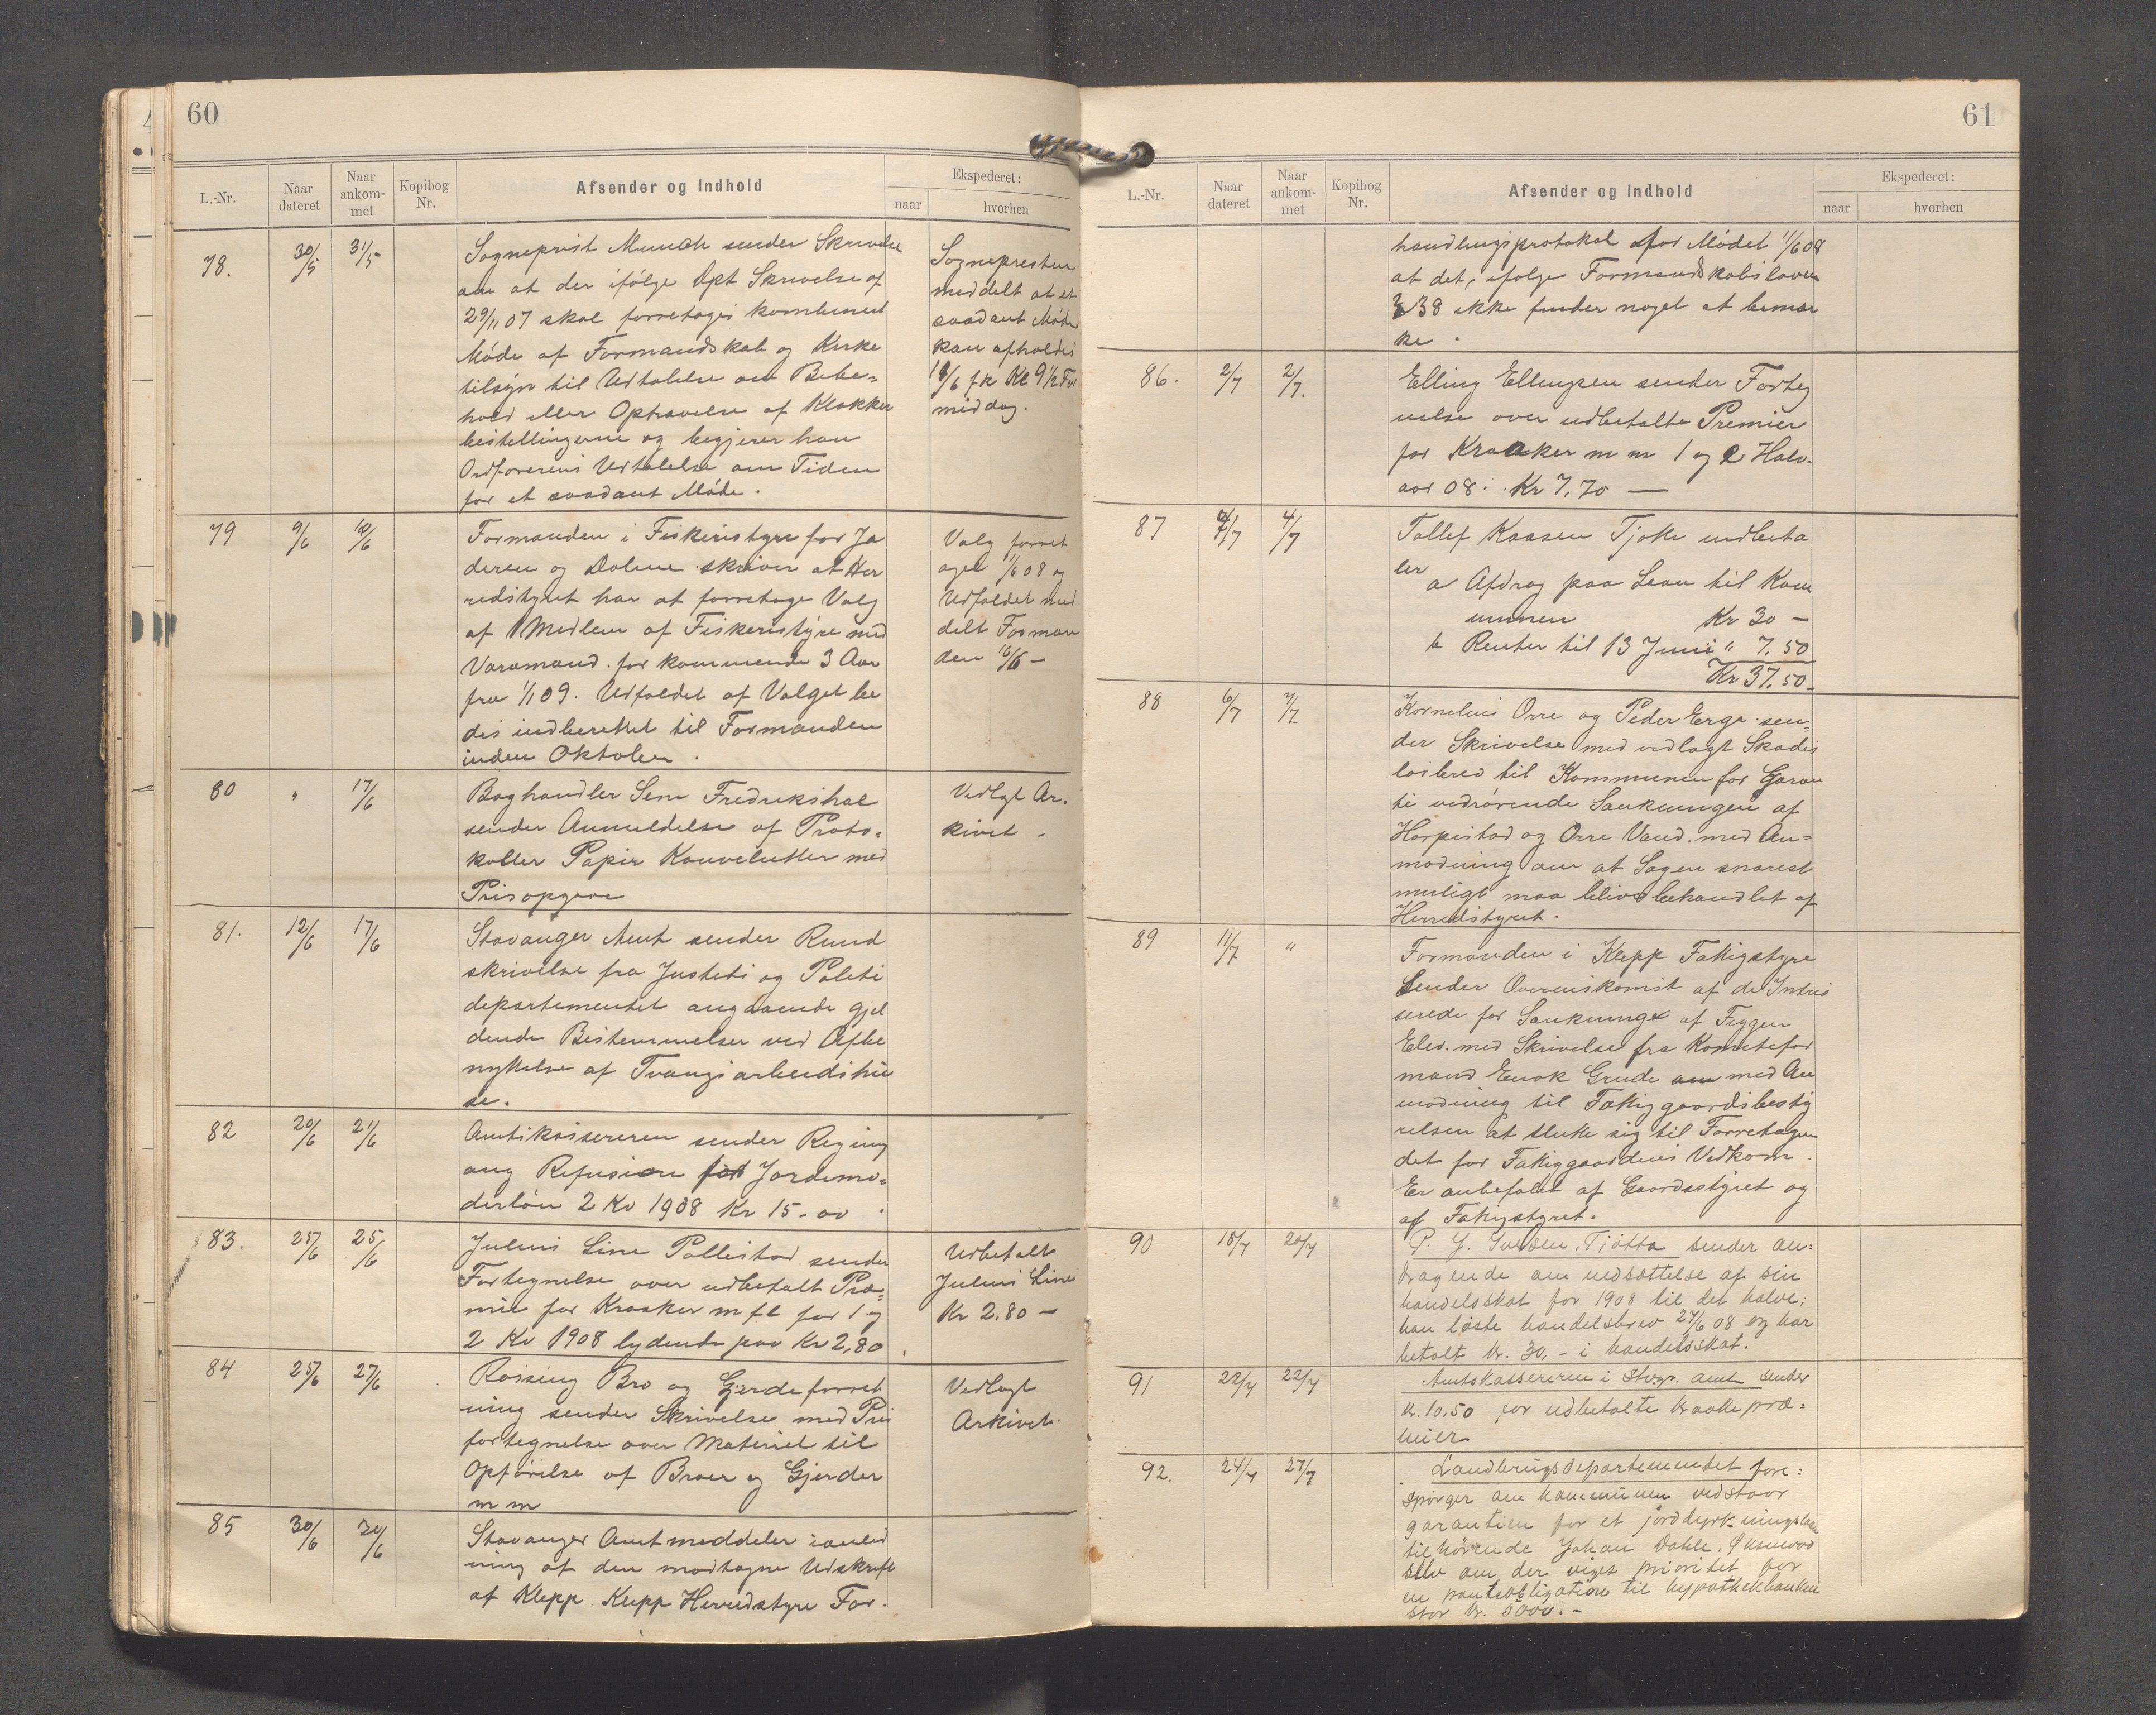 60
L.-Nr.
Naar dateret
Naar ankom- met
Kopibog Nr.
Afsender og Indhold
Ekspederet:
naar
hvorhen
78. 30/5 31/5 Sogneprest Munch sender Skrivelse
om at der ifølge Dpt Skrivelse af
29/11 07 skal forretages kombineret
Møde af Formandskab og Kirke
tilsyn til Udtalelse om Bebe-
hold eller Ophævelse af Klokker
bestillingerne og begjerer han
Ordførerens Udtalelse om Tiden
for et saadant Møde.
Sognepresten
meddelt at et
saadant Møde
kan afholdes
/6 fk Kl 9 1/2 For
middag.
79 9/6 10/6 Formanden i Fiskeristyre for Ja
deren og Dalene skriver at Her
redstyret har at forretage Valg
af 1 Medlem af Fiskeristyre med
Varamand for kommende 3 Aar
fra 1/1 09. Udfaldet af Valget be
des indberettet til Formanden
inden Oktober.
Valg forret
aget 11/6 08 og
Udfaldet med
delt Forman
den 16/6 –
80 " 17/6 Boghandler Sem Fredrikshal
sender Anmeldelse af Proto-
koller Papir Konvelutter med
Prisopgave
Vedlagt Ar.
kivet -
81. 12/6 17/6 Stavanger Amt sender Rund
skrivelse fra Justets og Politi
departementet angaaende gjel
dende Bestemmelser ved Afbe
nyttelse af Tvangsarbeidshu
se.
82 20/6 21/6 Amtskassereren sender Regning
ang Refusion for Jordemo-
derløn 2 Kv 1908 Kr 15-00
83. 25/6 25/6 Julius Line Pollestad sender
Fortegnelse over udbetalt Præ-
mie for Kraaker m fl for 1 og
2 Kv 1908 lydende paa Kr 2,80.
Udbetalt
Julius Line
Kr 2.80 –
84 25/6 27/6 Røising Bro og Gjerdeforret
ning sender Skrivelse med Pris
fortegnelse over Materiel til
Opførelse af Broer og Gjerder
m m
Vedlagt
Arkivet.
85 30/6 30/6 Stavanger Amt meddeler i anled
ning af den modtagne Udskrift
af Klepp Klepp Herredstyre For.
61
L.-Nr.
Naar dateret
Naar ankom- met
Kopibog Nr.
Afsender og Indhold
Ekspederet:
naar
hvorhen
handlingsprotokol for Mødet 11/6 08
at det, ifølge Formandskabsloven
§ 38 ikke finder noget at bemær
ke.
86. 2/7 2/7. Elling Ellingsen sender Forteg
nelse over udbetalte Premier
for Kraaker m m 1 og 2 Halv-
aar 08. Kr 7,70 —
87 4/7 4/7 Tollef Kaasen Tjøtte indbeta
ler
a Afdrag paa Laan til Kom
munen Kr 30 –
b Renter til 13 Juni " 7.50
Kr 37.50–
88 6/7 7/7. Kornelius Orre og Peder Erga sen-
der Skrivelse med vedlagt Skades
løsbrev til Kommunen for Garan
ti vedrørende Sænkningen af
Horpestad og Orre Vand. med An-
modning om at Sagen snarest
muligt maa blive behandlet af
Herredstyret.
89 11/7 " Formanden i Klepp Fatigstyre
Sender Overenskomst af de Intres
serede for Sænkning af Figgen
Elv. med Skrivelse fra Kometefor
mand Enok Grude om med An
modning til Fattiggaardsbesty
relsen at slutte sig til Forretagen
det for Fatiggaardens Vedkom.
Er anbefalet af Gaardsstyret og
af Fatigstyret.
90 18/7 20/7 P. J. Tjøtta sender an-
dragende om nedsættelse af sin
handelsskat for 1908 til det halve;
han løste handelsbrev 27/6 08 og har
betalt kr. 30,- i handelsskat.
91 22/7 22/7 Amtskassereren i Stvgr. amt sender
kr. 10.50 for udbetalte kraakepræ-
mier
92. 24/7 27/7 Landbrugsdepartementet fore-
spørger om kommunen vedstaar
garantien for et jorddyrkningslaan
tilhørende Johan Dahle,
selv om der viges prioritet for
en panteobligation til hypothekbanken
stor kr. 5000.-